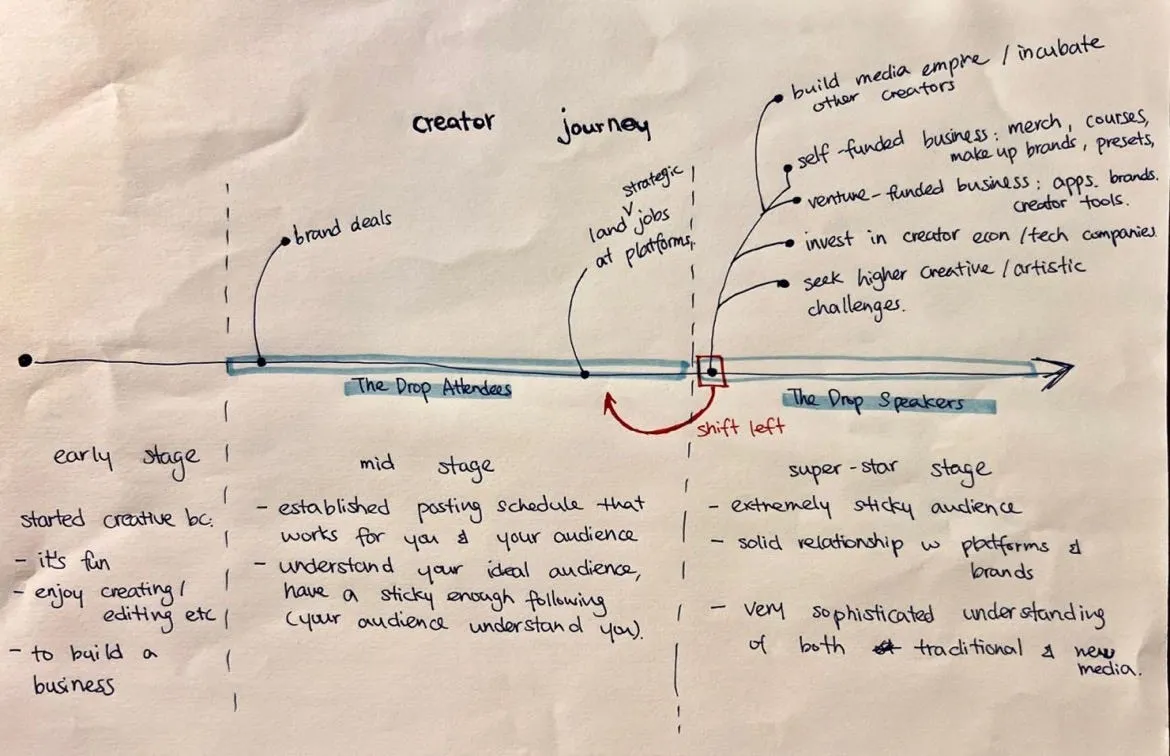 creator journey
build media empire / incubate
other creators
self-funded business: merch, courses,
make up brands, presets,
venture-funded business: apps. brands.
creator tools.
invest in creator econ/tech companies.
seek higher creative/artistic
challenges.
brand deals
strategic
land jobs
at platforms,
The Drop Attendees
The Drop Speakers
shift left
early stage
started creative bc:
- it's fun
- enjoy creating/
editing etc
- to build a
business
mid stage
- established posting schedule that
works for you & your audience
- understand your ideal audience,
have a sticky enough following
(your audience understand you).
super-star stage
- extremely sticky audience
- solid relationship w platforms &
brands
- very sophisticated understanding
of both traditional & new
media.